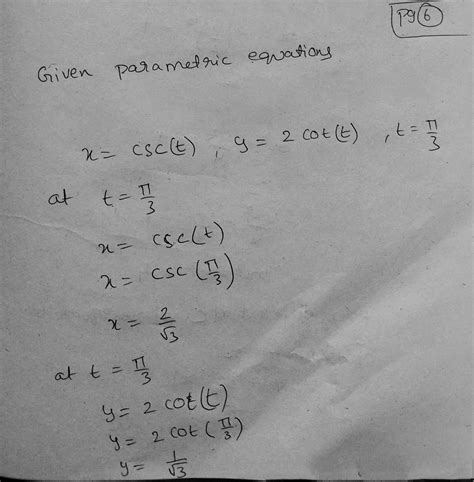 pg 6
Given parametric equations
x = csc(t), y = 2 cot(t), t = π/3
at t = π/3
x = csc(t)
x = csc(π/3)
x = 2/√3
at t = π/3
y = 2 cot(t)
y = 2 cot(π/3)
y = 1/√3